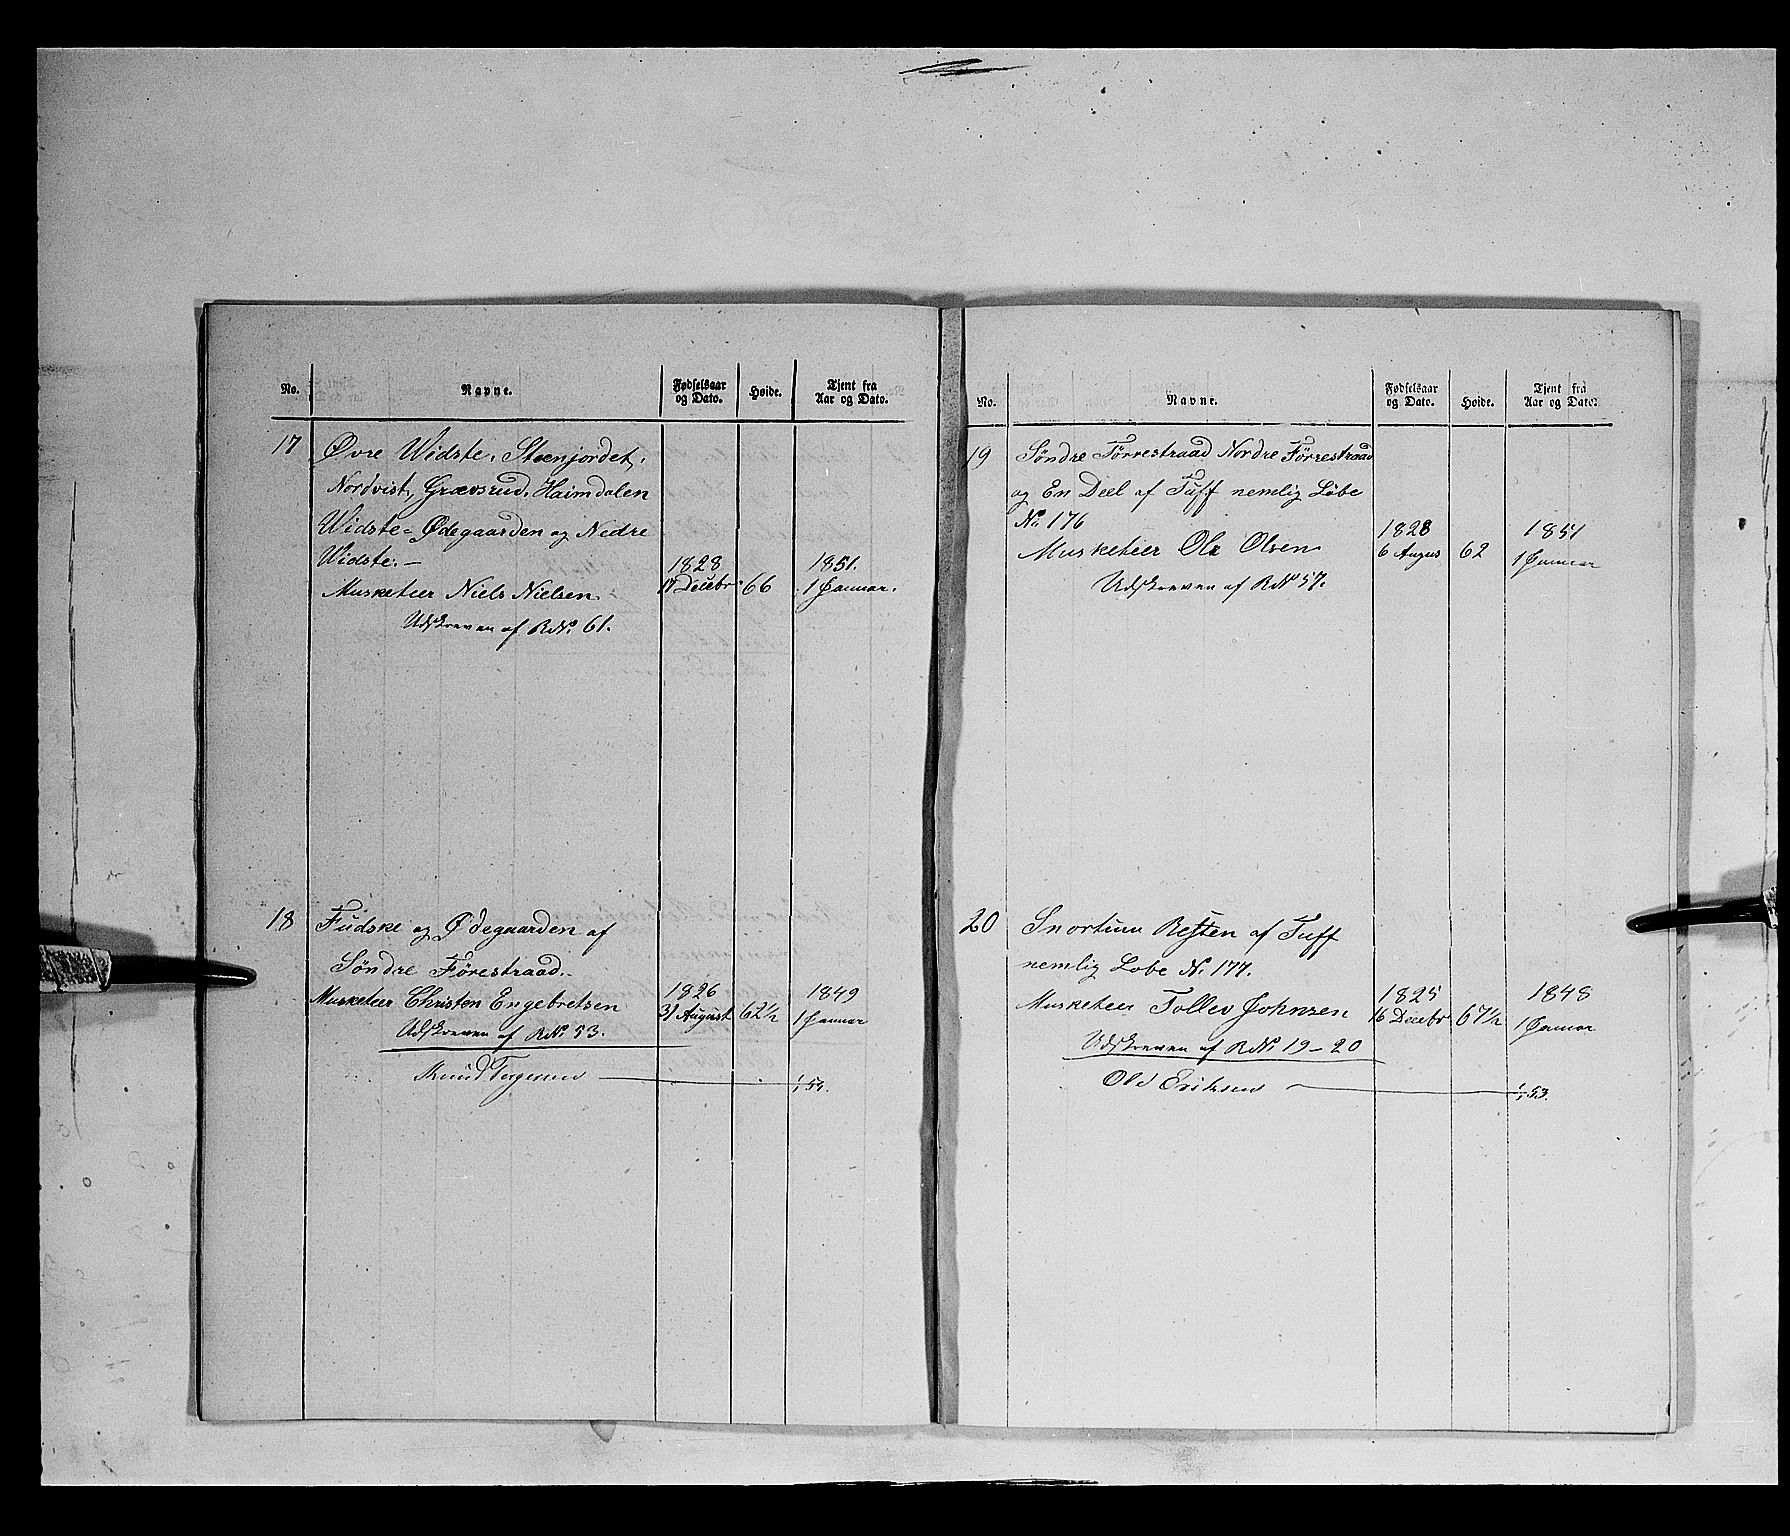 No. Navne. Fødselsaar og Dato. Høide. Tjent fra Aar og Dato.
17 Øvre Widste, Steenjordet,
Nordvist, Grævsrud, Haimdalen
Widste-Ødegaarden og Nedre
Widste.- 1828 1851.
Musketeer Niels Nielsen 17 Decebr 66 1 Januar.
Udskreven af RNo. 61.
18 Fudske og Ødegaarden af
Søndre Førestraad.
Musketeer Christen Engebretsen 1826 31 August 62½ 1849 1 Januar
Udskreven af RNo. 53.
Knud Tergersen
No. Navne. Fødselsaar og Dato. Høide. Tjent fra Aar og Dato.
19 Søndre Førrestraad Nordre Førrestraad
og En Deel af Tuff nemlig Løbe
No. 176 1828 1851
Musketeer Ole Olsen 6 Augus 62 1 Januar
Udskreven af RNo. 57.
20 Snortum Resten af Tuff
nemlig Lobe No. 177.
Musketeer Tollev Johnsen 1825 16 Decebr 67½ 1848 1 Januar
Udskreven af RNo. 19-20
Ole Eriksen 1/1 53.